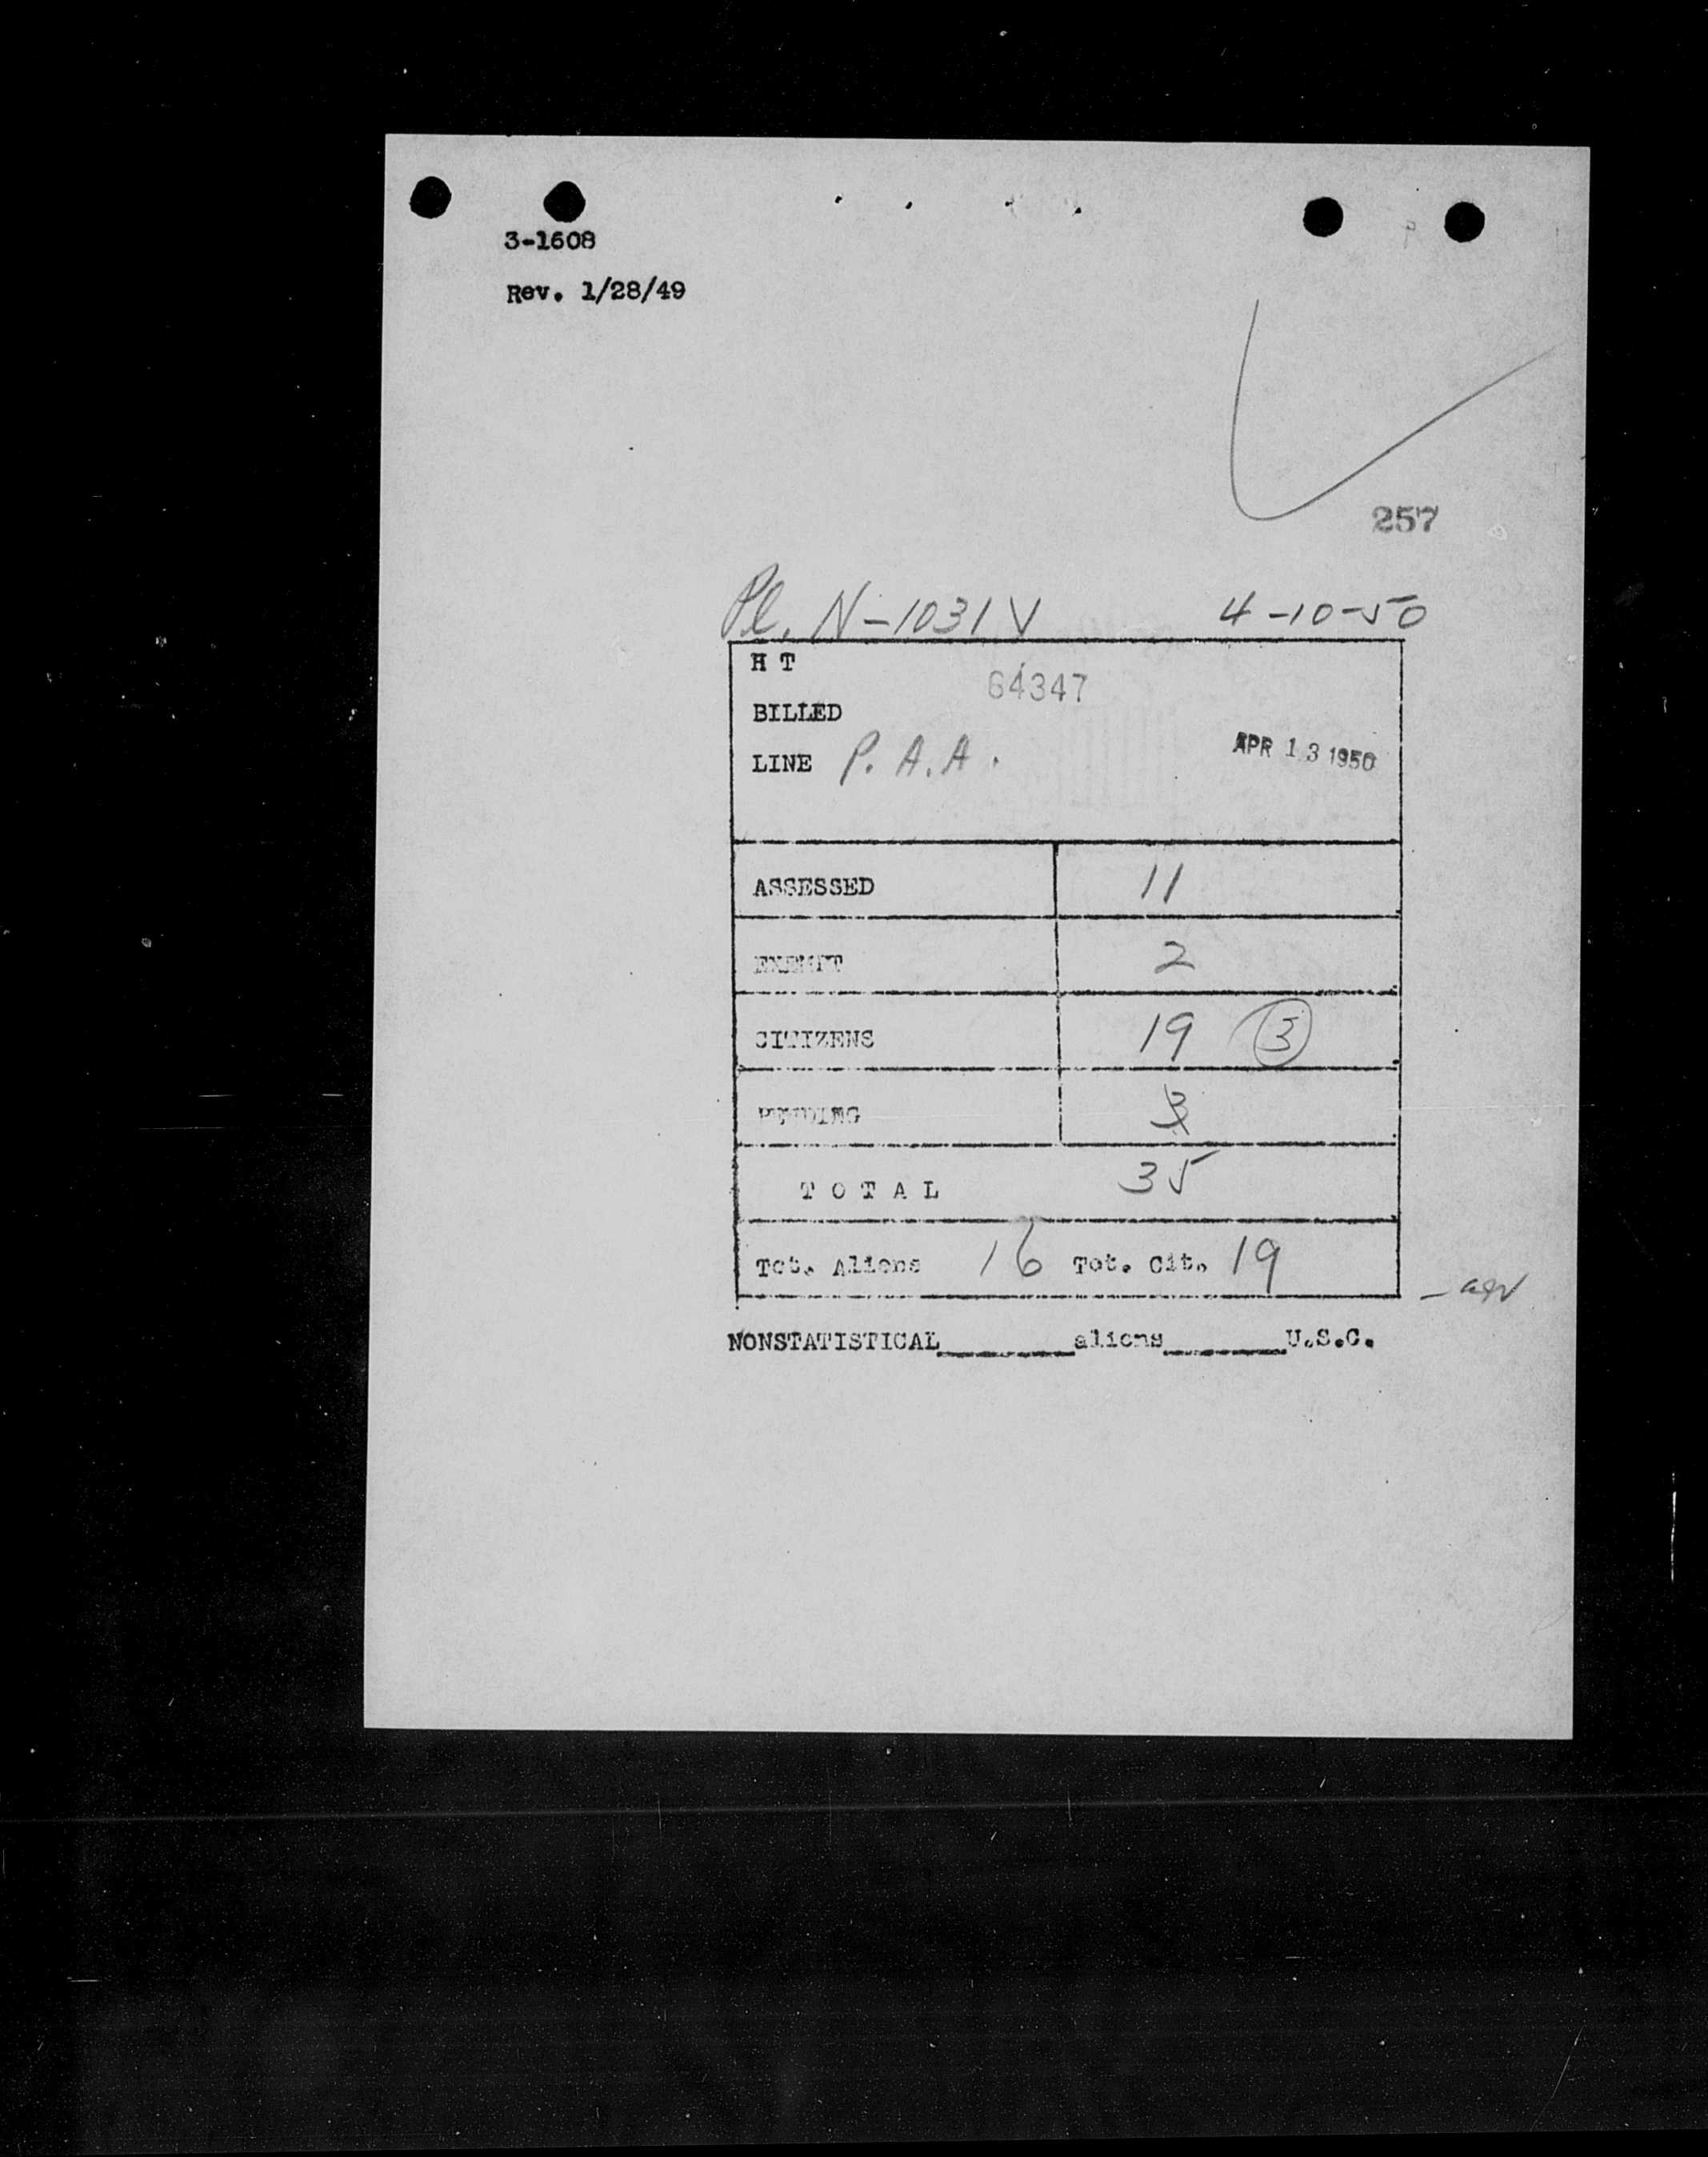 3-1608
Rev. 1/28/49
257
Pl. N-1031V 4-10-50
H T
64347
BILLED
APR 13 1950
LINE P. A. A.
ASSESSED 11
EXEMPT 2
CITIZENS 19 3
PENDING 3
TOTAL 35
Tot. Aliens 16 Tot. Cit. 19
NONSTATISTICAL______aliens______U.S.C.